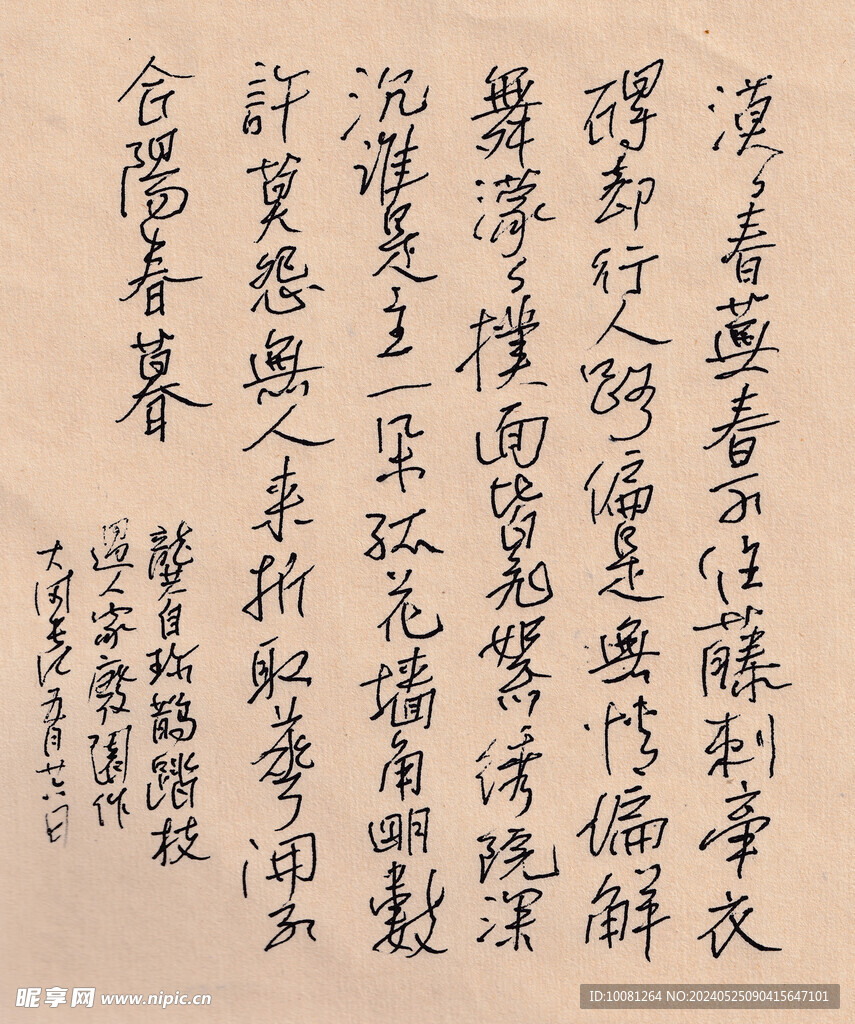 漠々春蕪春不住藤刺牽衣
碍却行人路偏是無情偏解
舞濛々撲面皆飛絮綉院深
沉誰是主一朵孤花墙角明數
許莫怨無人来折取華開不
合陽春暮
龔自珍鵲踏枝
過人家廢園作
五月廿六日
昵享网 www.nipic.cn
ID:10081264 NO:20240525090415647101